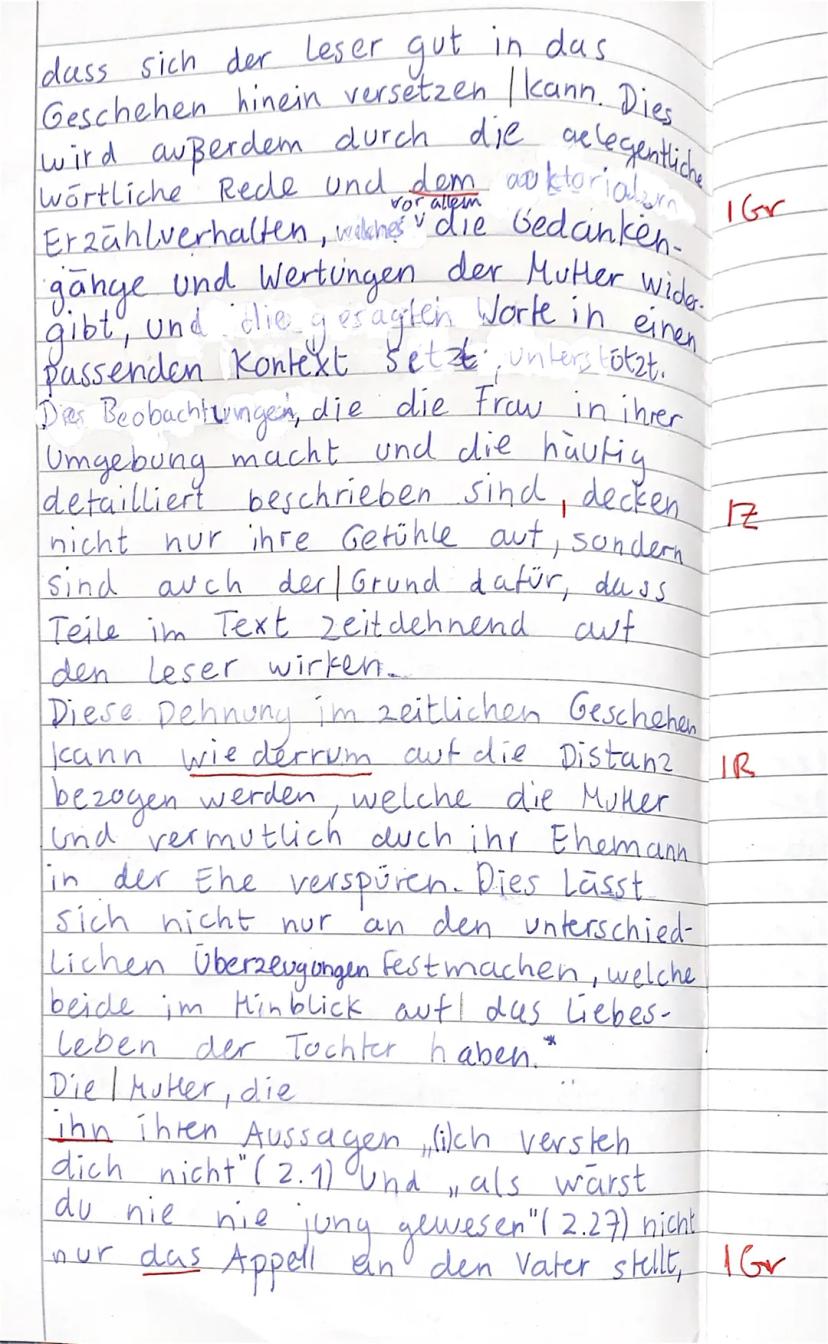 dass sich der Leser gut in das
Geschehen hinein versetzen | kann. Dies
wird außerdem durch die gelegentliche
wörtliche Rede und dem auktorialern 1Gr
vor allem
Erzählverhalten, welches v die Gedanken-
gänge und Wertungen der Mutter wider-
gibt, und die gesagten Worte in einen
passenden Kontext setzt, unterstützt.
Beobachtungen, die die Frau in ihrer
Umgebung macht und die häufig
detailliert beschrieben sind, decken 1Z
nicht nur ihre Gefühle auf, sondern
sind auch der | Grund dafür, dass
Teile im Text zeitdehnend auf
den Leser wirken.
Diese Dehnung im zeitlichen Geschehen
kann wiederrum auf die Distanz 1R
bezogen werden, welche die Mutter
und vermutlich auch ihr Ehemann
in der Ehe verspüren. Dies lässt
sich nicht nur an den unterschied-
lichen Überzeugungen festmachen, welche
beide im Hinblick auf | das Liebes-
leben der Tochter haben.*
Die | Mutter, die
ihn ihren Aussagen „(i)ch versteh
dich nicht" (Z.1) und „als wärst
du nie nie jung gewesen" (Z.27) nicht
nur das Appell an den Vater stellt, 1Gr